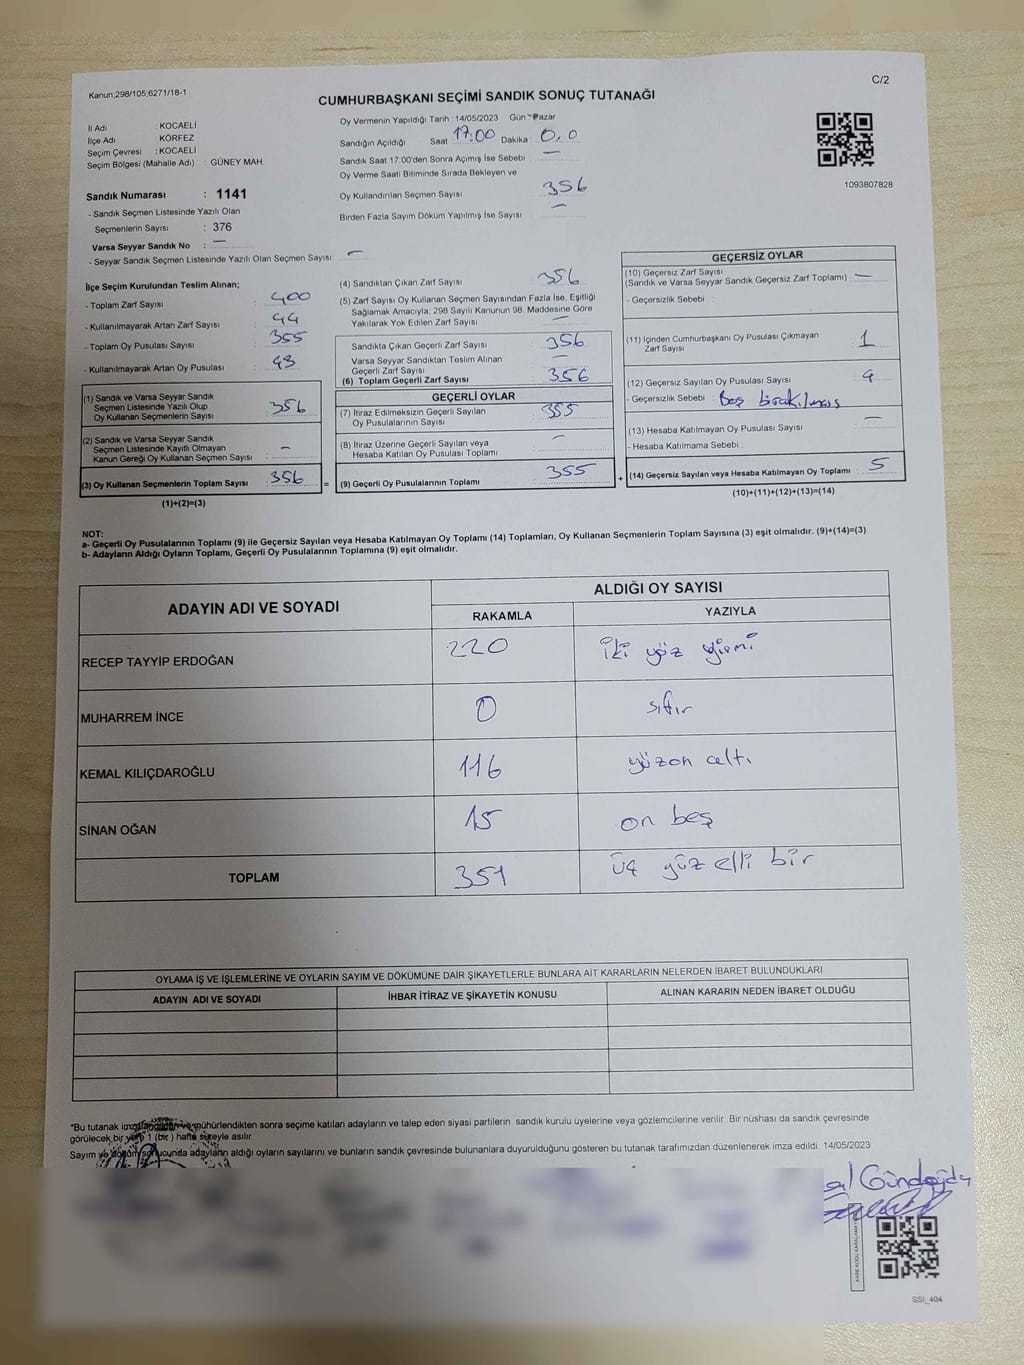 Kanun;298/105;6271/18-1
C/2
CUMHURBAŞKANI SEÇİMİ SANDIK SONUÇ TUTANAĞI
İl Adı : KOCAELİ
İlçe Adı : KÖRFEZ
Seçim Çevresi : KOCAELİ
Seçim Bölgesi (Mahalle Adı) : GÜNEY MAH.
Sandık Numarası : 1141
- Sandık Seçmen Listesinde Yazılı Olan
Seçmenlerin Sayısı : 376
Varsa Seyyar Sandık No : —
- Seyyar Sandık Seçmen Listesinde Yazılı Olan Seçmen Sayısı: —
Oy Vermenin Yapıldığı Tarih :14/05/2023 Gün : Pazar
Sandığın Açıldığı Saat 17:00 Dakika 0.0
Sandık Saat 17.00'den Sonra Açımış İse Sebebi : —
Oy Verme Saati Bitiminde Sırada Bekleyen ve
Oy Kullandırılan Seçmen Sayısı 356
Birden Fazla Sayım Döküm Yapılmış İse Sayısı —
1093807828
İlçe Seçim Kurulundan Teslim Alınan;
- Toplam Zarf Sayısı : 400
- Kullanılmayarak Artan Zarf Sayısı : 44
- Toplam Oy Pusulası Sayısı : 355
- Kullanılmayarak Artan Oy Pusulası : 43
(1) Sandık ve Varsa Seyyar Sandık
Seçmen Listesinde Yazılı Olup
Oy Kullanan Seçmenlerin Sayısı : 356
(2) Sandık ve Varsa Seyyar Sandık
Seçmen Listesinde Kayıtlı Olmayan
Kanun Gereği Oy Kullanan Seçmen Sayısı : —
(3) Oy Kullanan Seçmenlerin Toplam Sayısı : 356
(1)+(2)=(3)
(4) Sandıktan Çıkan Zarf Sayısı : 356
(5) Zarf Sayısı Oy Kullanan Seçmen Sayısından Fazla İse, Eşitliği
Sağlamak Amacıyla; 298 Sayılı Kanunun 98. Maddesine Göre
Yakılarak Yok Edilen Zarf Sayısı : —
Sandıkta Çıkan Geçerli Zarf Sayısı : 356
Varsa Seyyar Sandıktan Teslim Alınan
Geçerli Zarf Sayısı : —
(6) Toplam Geçerli Zarf Sayısı : 356
GEÇERLİ OYLAR
(7) İtiraz Edilmeksizin Geçerli Sayılan
Oy Pusulasının Sayısı : 355
(8) İtiraz Üzerine Geçerli Sayılan veya
Hesaba Katılan Oy Pusulası Toplamı : —
(9) Geçerli Oy Pusulalarının Toplamı : 355
GEÇERSİZ OYLAR
(10) Geçersiz Zarf Sayısı
(Sandık ve Varsa Seyyar Sandık Geçersiz Zarf Toplamı) : —
- Geçersizlik Sebebi :
(11) İçinden Cumhurbaşkanı Oy Pusulası Çıkmayan
Zarf Sayısı : 1
(12) Geçersiz Sayılan Oy Pusulası Sayısı : 4
- Geçersizlik Sebebi : Boş bırakılması
(13) Hesaba Katılmayan Oy Pusulası Sayısı : —
- Hesaba Katılmama Sebebi :
(14) Geçersiz Sayılan veya Hesaba Katılmayan Oy Toplamı : 5
(10)+(11)+(12)+(13)=(14)
NOT:
a- Geçerli Oy Pusulalarının Toplamı (9) ile Geçersiz Sayılan veya Hesaba Katılmayan Oy Toplamı (14) Toplamları, Oy Kullanan Seçmenlerin Toplam Sayısına (3) eşit olmalıdır. (9)+(14)=(3)
b- Adayların Aldığı Oyların Toplamı, Geçerli Oy Pusulalarının Toplamına (9) eşit olmalıdır.
ADAYIN ADI VE SOYADI
ALDIĞI OY SAYISI
RAKAMLA YAZIYLA
RECEP TAYYİP ERDOĞAN 220 iki yüz yirmi
MUHARREM İNCE 0 sıfır
KEMAL KILIÇDAROĞLU 116 yüzon altı
SİNAN OĞAN 15 on beş
TOPLAM 351 üç yüz elli bir
OYLAMA İŞ VE İŞLEMLERİNE VE OYLARIN SAYIM VE DÖKÜMÜNE DAİR ŞİKAYETLERLE BUNLARA AİT KARARLARIN NELERDEN İBARET BULUNDUKLARI
ADAYIN ADI VE SOYADI İHBAR İTİRAZ VE ŞİKAYETİN KONUSU ALINAN KARARIN NEDEN İBARET OLDUĞU
*Bu tutanak imzalandıktan ve mühürlendikten sonra seçime katılan adayların ve talep eden siyasi partilerin sandık kurulu üyelerine veya gözlemcilerine verilir. Bir nüshası da sandık çevresinde
görülecek bir yere 1 (bir) hafta süreyle asılır.
Sayım ve döküm sonucunda adayların aldığı oyların sayılarını ve bunların sandık çevresinde bulunanlara duyurulduğunu gösteren bu tutanak tarafımızdan düzenlenerek imza edildi. 14/05/2023
SSI_404